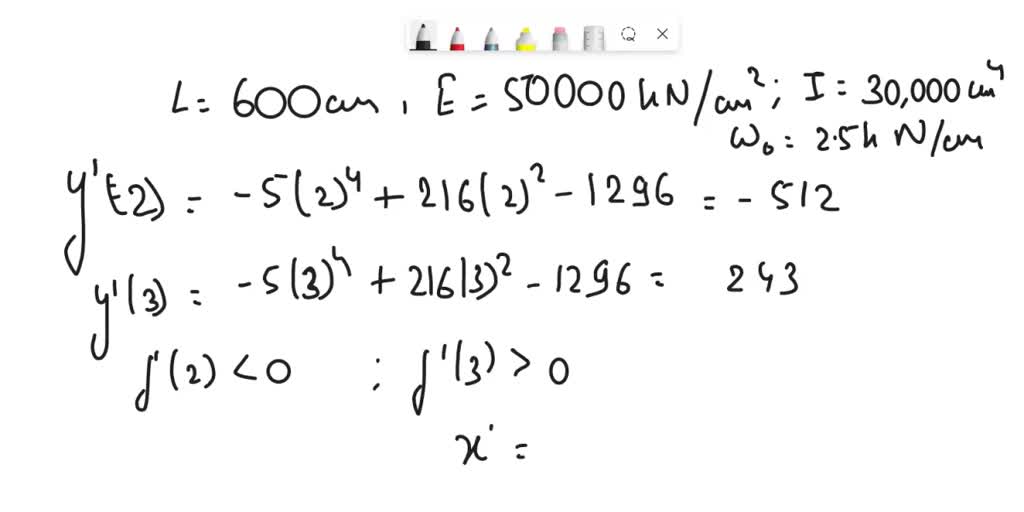 L = 600cm, E = 50000 kN/cm²; I = 30,000 cm⁴
W₀ = 2.5k N/cm
y'(2) = -5(2)⁴ + 216(2)² - 1296 = - 512
y'(3) = -5(3)⁴ + 216(3)² - 1296 = 243
f'(2) < 0 ; f'(3) > 0
x' =